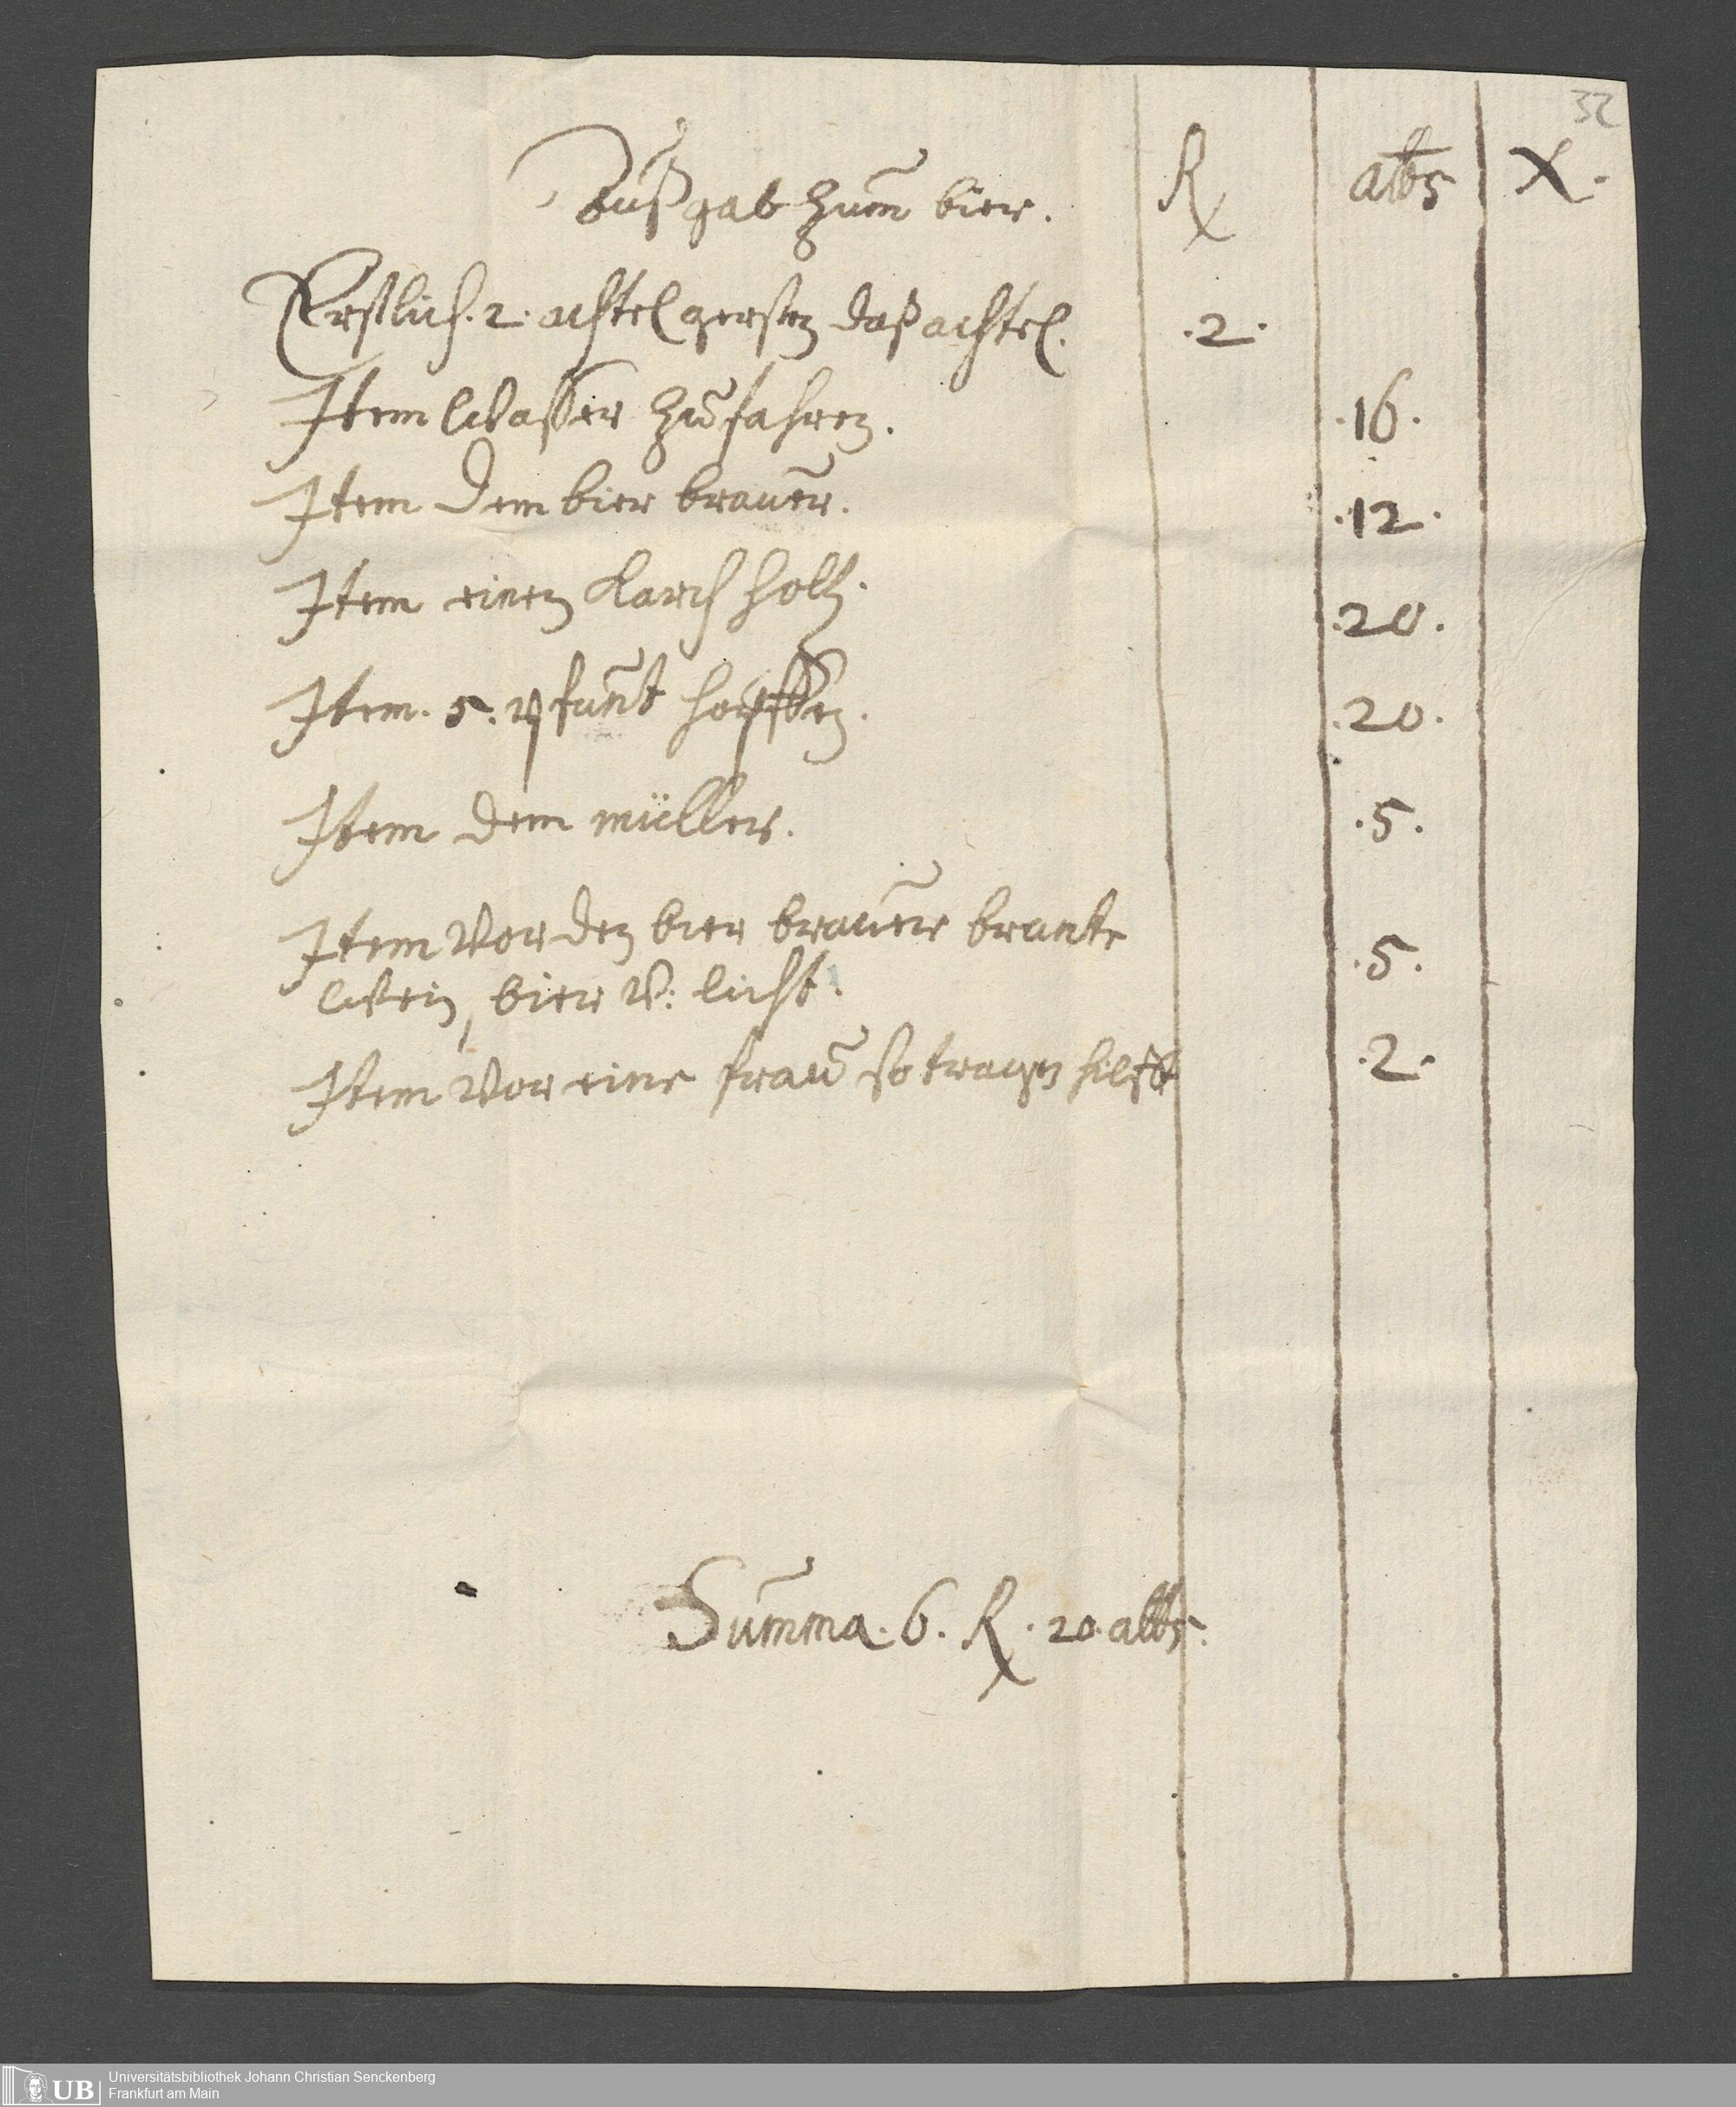 32
Außgab zum bier. R albs X.
Erstlich. 2. achtel gersten daß achtel. .2.
Item Wasser zu fahren. .16.
Item dem bier brauer. .12.
Item einen Karch holtz. .20.
Item. 5. pfunt hopffen. .20.
Item dem müller. .5.
Item vor den bier brauer brante
Wein, bier v: licht. .5.
Item vor eine frau so tragen hilft .2.
Summa. 6. R. 20. albs.
UB
Universitätsbibliothek Johann Christian Senckenberg
Frankfurt am Main